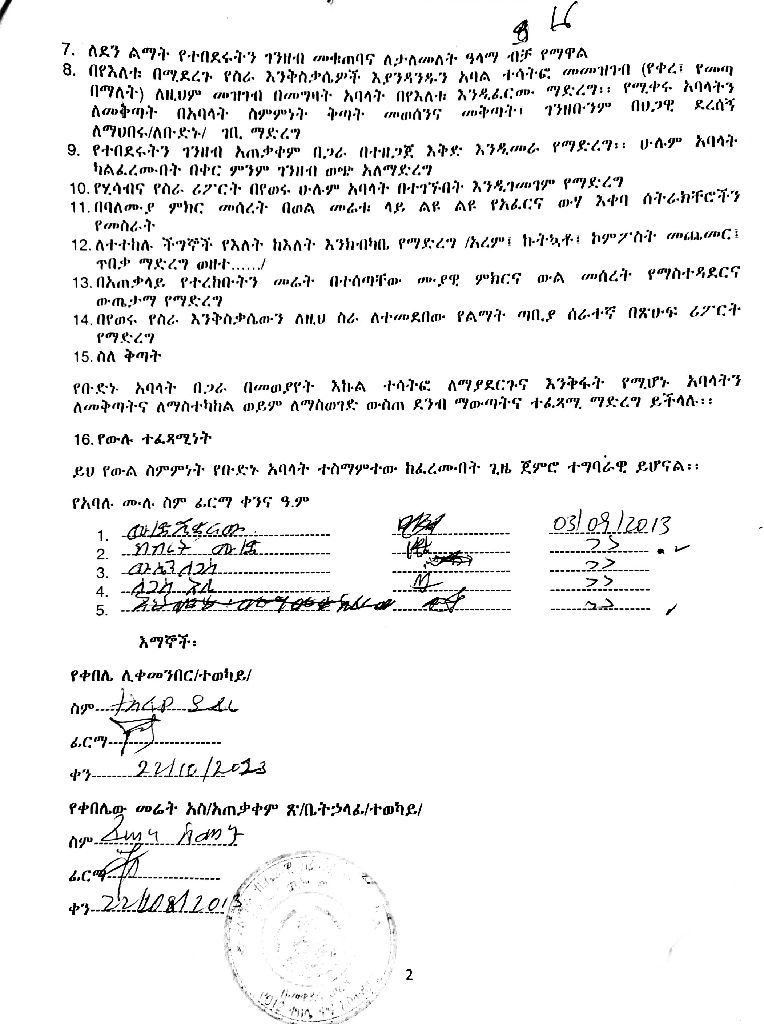 7. ለደን ልማት የተበደሩትን ገንዘብ መቁጠባና ለታለመለት ዓላማ ብቻ የማዋል
8. በየእለቱ በሚደረጉ የስራ እንቅስቃሴዎች እያንዳንዱን አባል ተሳትፎ መመዝገብ (የቀረ፣ የመጣ
በማለት) ለዚህም መዝገብ በመግዛት አባላት በየእለቱ እንዲፈርሙ ማድረግ፡፡ የሚቀሩ አባላትን
ለመቅጣት በአባላት ስምምነት ቅጣት መወሰንና መቅጣት፣ ገንዘቡንም በህጋዊ ደረሰኝ
ለማህበሩ/ለቡድኑ/ ገቢ ማድረግ
9. የተበደሩትን ገንዘብ አጠቃቀም በጋራ በተዘጋጀ እቅድ እንዲመራ የማድረግ፡፡ ሁሉም አባላት
ካልፈረሙበት በቀር ምንም ገንዘብ ወጭ አለማድረግ
10. የሂሳብና የስራ ሪፖርት በየወሩ ሁሉም አባላት በተገኙበት እንዲገመገም የማድረግ
11. በባለሙያ ምክር መሰረት በወል መሬቱ ላይ ልዩ ልዩ የአፈርና ውሃ እቀባ ስትራክቸሮችን
የመስራት
12. ለተተከሉ ችግኞች የእለት ከእለት እንክብካቤ የማድረግ /አረም፤ ኩትኳቶ፤ ኮምፖስት መጨመር፤
ጥበቃ ማድረግ ወዘተ....../
13. በአጠቃላይ የተረከቡትን መሬት በተሰጣቸው ሙያዊ ምክርና ውል መሰረት የማስተዳደርና
ውጤታማ የማድረግ
14. በየወሩ የስራ እንቅስቃሴውን ለዚህ ስራ ለተመደበው የልማት ጣቢያ ሰራተኛ በጽሁፍ ሪፖርት
የማድረግ
15. ስለ ቅጣት
የቡድኑ አባላት በጋራ በመወያየት እኩል ተሳትፎ ለማያደርጉና እንቅፋት የሚሆኑ አባላትን
ለመቅጣትና ለማስተካከል ወይም ለማስወገድ ውስጠ ደንብ ማውጣትና ተፈጻሚ ማድረግ ይችላሉ፡፡
16. የውሉ ተፈጻሚነት
ይህ የውል ስምምነት የቡድኑ አባላት ተስማምተው ከፈረሙበት ጊዜ ጀምሮ ተግባራዊ ይሆናል፡፡
የአባሉ ሙሉ ስም ፊርማ ቀንና ዓ.ም
1. 03/09/2013
2. >>
3. >>
4. >>
5. >>
እማኞች፡
የቀበሌ ሊቀመንበር/ተወካይ/
ስም
ፊርማ
ቀን 22/10/2013
የቀበሌው መሬት አስ/አጠቃቀም ጽ/ቤት ኃላፊ/ተወካይ/
ስም
ፊርማ
ቀን 22/08/2013
2